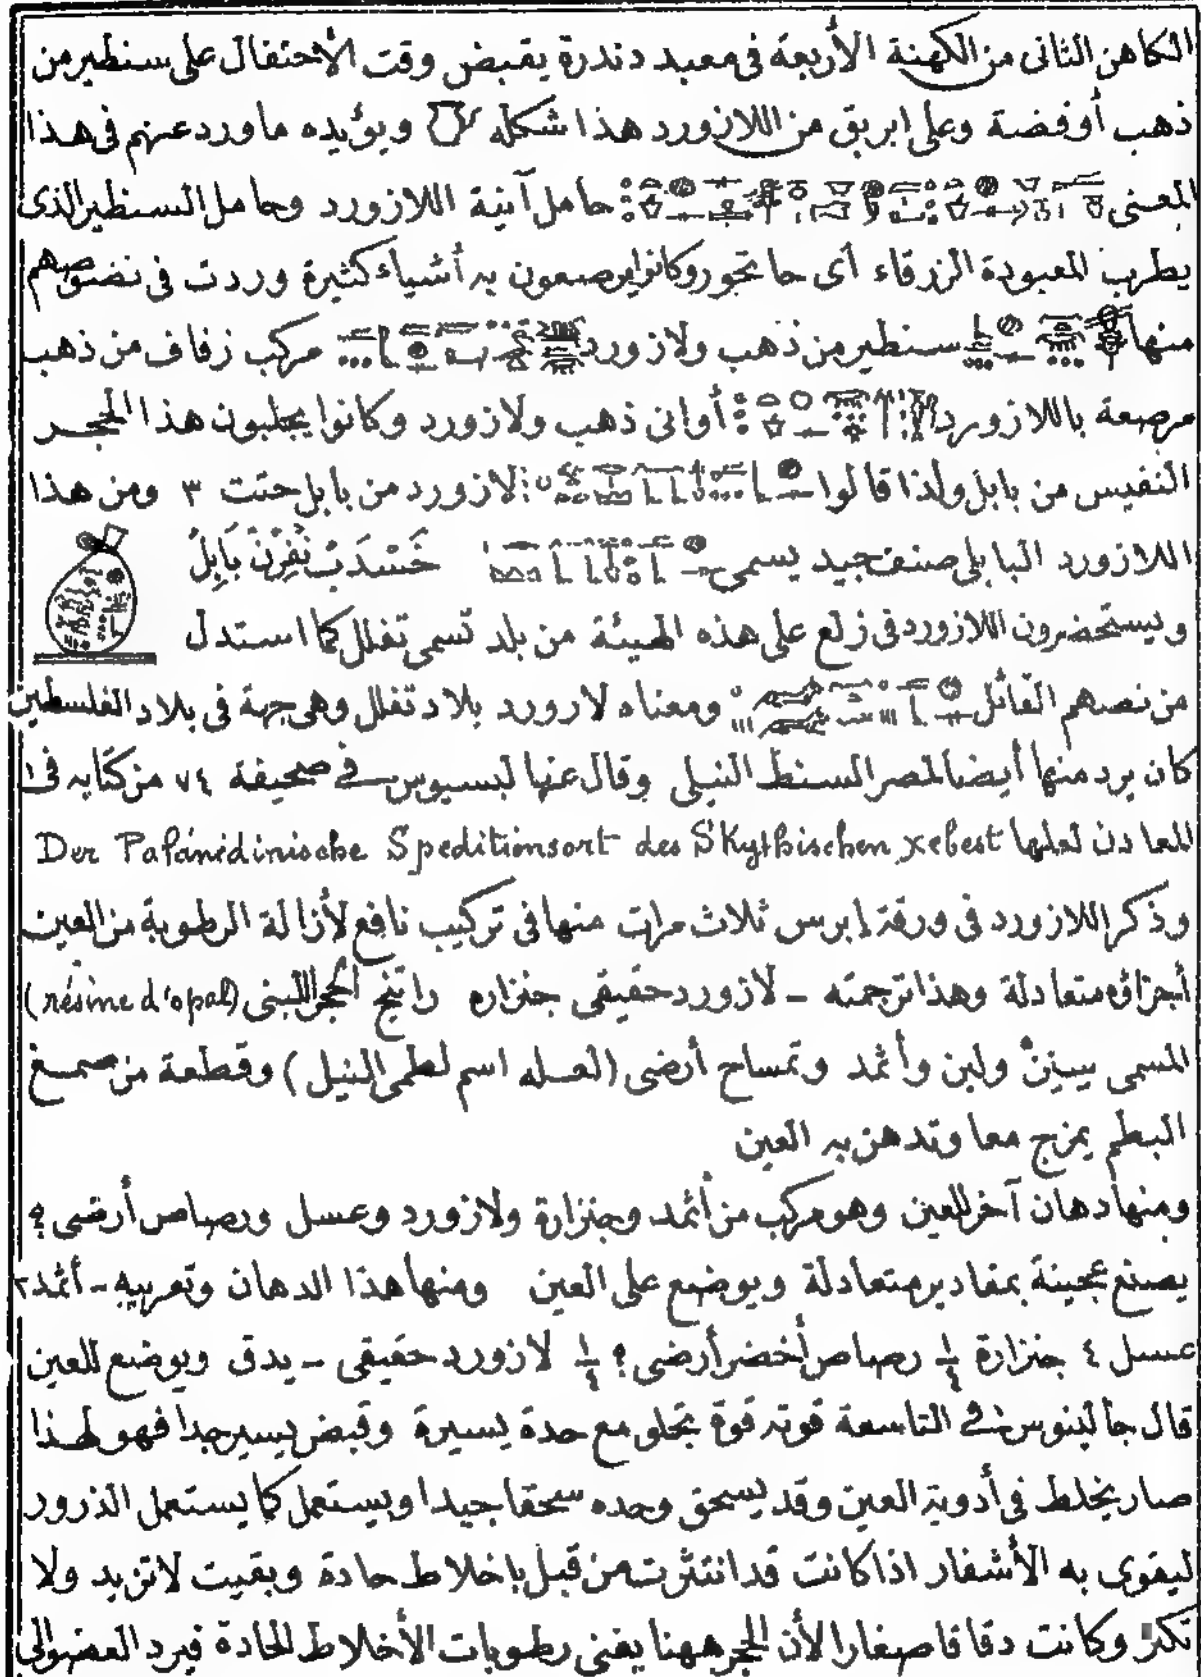 الكاهن الثانى من الكهنة الأربعة فى معبد دندرة يقبض وقت الأحتفال على سنطير من
ذهب أوفضة وعلى ابريق من اللازورد هذا شكله ويؤيده ما ورد عنهم فى هذا
المعنى حامل آنية اللازورد وحامل السنطير الذى
يطرب المعبودة الزرقاء أى حاتحور وكانوا يرصعون به أشياء كثيرة وردت فى نصوصهم
منها سنطير من ذهب ولازورد مركب زفاف من ذهب
مرصعة باللازورد أوانى ذهب ولازورد وكانوا يجلبون هذا الحجر
النفيس من بابل ولذا قالوا لازورد من بابل حتت ٣ ومن هذا
اللازورد البابلى صنف جيد يسمى خَسْدَبْ نُفِرْنْ بَابِلُ
ويستحضرون اللازورد فى زلع على هذه الهيئة من بلد تسمى تفلل كما استدل
من نصهم القائل ومعناه لازورد بلاد تفلل وهى جهة فى بلاد الفلسطين
كان يرد منها أيضا لمصر السنط النيلى وقال عنها لبسيوس فى صحيفة ٧٤ من كتابه فى
المعادن لعلها Der Palänidinische Speditionsort des Skythischen χebest
وذكر اللازورد فى ورقة إبرس ثلاث مرات منها فى تركيب نافع لأزالة الرطوبة من العين
أجزاؤه متعادلة وهذا ترجمته - لازورد حقيقى جنزاره راتنج الحجر اللبنى (résine d'opal)
المسمى ولبن وأثمد وتمساح أرضى (لعله اسم لطمى النيل) وقطعة من صمغ
البطم يمزج معا وتدهن به العين
ومنها دهان آخر للعين وهو مركب من أثمد وجنزارة ولازورد وعسل ورصاص أرضى ؟
يصنع عجينة بمقادير متعادلة ويوضع على العين ومنها هذا الدهان وتعريبه - أثمد ٢
عسل ٤ جنزارة ¼ رصاص أخضر أرضى ؟ ¼ لازورد حقيقى - يدق ويوضع للعين
قال جالينوس فى التاسعة قوته قوة تجلو مع حدة يسيرة وقبض يسير جدا فهو لهذا
صار يخلط فى أدوية العين وقد يسحق وحده سحقا جيدا ويستعمل كما يستعمل الذرور
ليقوى به الأشفار اذا كانت قد انتثرت من قبل باخلاط حادة وبقيت لاتزيد ولا
تكثر وكانت دقاقا صغارا لأن الحجر ههنا يفنى رطوبات الأخلاط الحادة فيرد العضو الى